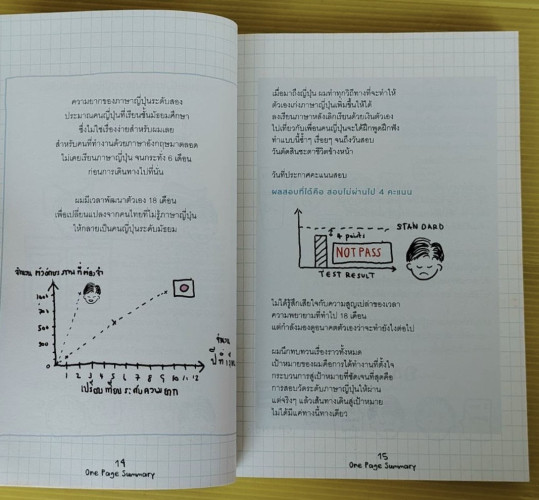 ความยากของภาษาญี่ปุ่นระดับสอง
ประมาณคนญี่ปุ่นที่เรียนชั้นมัธยมศึกษา
ซึ่งไม่ใช่เรื่องง่ายสำหรับผมเลย
สำหรับคนที่ทำงานด้วยภาษาอังกฤษมาตลอด
ไม่เคยเรียนภาษาญี่ปุ่น จนกระทั่ง 6 เดือน
ก่อนการเดินทางไปที่นั่น
ผมมีเวลาพัฒนาตัวเอง 18 เดือน
เพื่อเปลี่ยนแปลงจากคนไทยที่ไม่รู้ภาษาญี่ปุ่น
ให้กลายเป็นคนญี่ปุ่นระดับมัธยม
จำนวน ตัวอักษร
1000
700
500
300
1 2 3 4 5 6 7 8 9 10 11 12
จำนวน
ปีที่
เปรียบเทียบระดับความยาก
14
One Page Summary
เมื่อมาถึงญี่ปุ่น ผมทำทุกวิถีทางที่จะทำให้
ตัวเองเก่งภาษาญี่ปุ่นเพิ่มขึ้นให้ได้
ลงเรียนภาษาหลังเลิกเรียนด้วยเงินตัวเอง
ไปเที่ยวกับเพื่อนคนญี่ปุ่นจะได้ฝึกพูดฝึกฟัง
ทำแบบนี้ซ้ำๆ เรื่อยๆ จนถึงวันสอบ
วันตัดสินชะตาชีวิตข้างหน้า
วันที่ประกาศคะแนนสอบ
ผลสอบที่ได้คือ สอบไม่ผ่านไป 4 คะแนน
STANDARD
4 points
NOT PASS
TEST RESULT
ไม่ได้รู้สึกเสียใจกับความสูญเปล่าของเวลา
ความพยายามที่ทำไป 18 เดือน
แต่กำลังมองดูอนาคตตัวเองว่าจะทำยังไงต่อไป
ผมนึกทบทวนเรื่องราวทั้งหมด
เป้าหมายของผมคือการได้ทำงานที่ตั้งใจ
กระบวนการสู่เป้าหมายที่ชัดเจนที่สุดคือ
การสอบวัดระดับภาษาญี่ปุ่นให้ผ่าน
แต่จริงๆ แล้วเส้นทางเดินสู่เป้าหมาย
ไม่ได้มีแค่ทางนี้ทางเดียว
15
One Page Summary